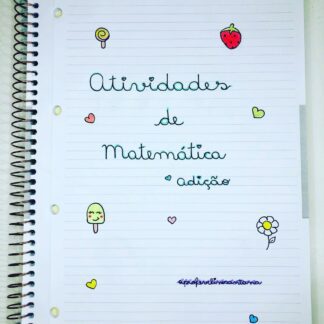 Atividades
de
Matemática
adição